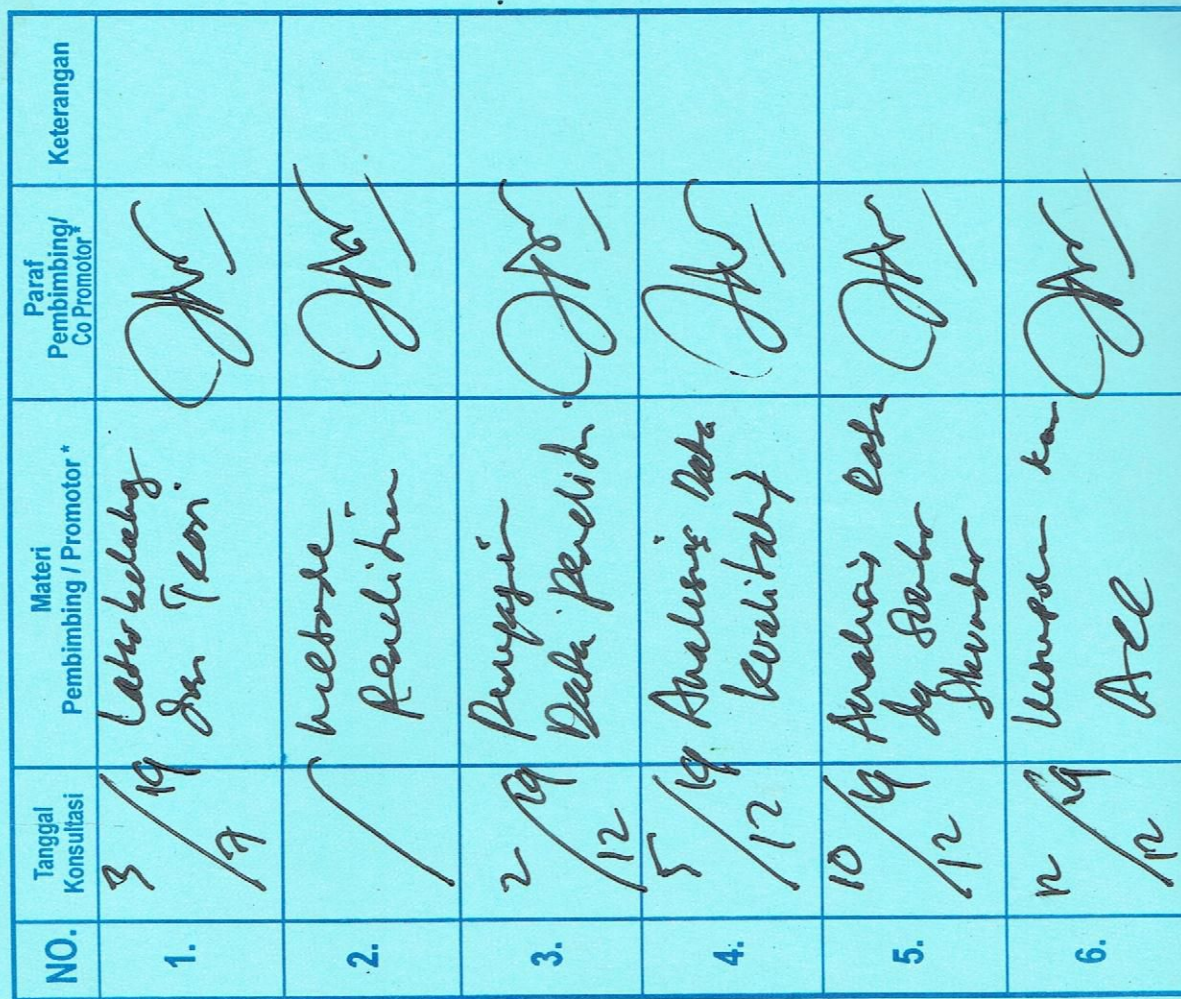 NO.
Tanggal
Konsultasi
Materi
Pembimbing / Promotor *
Paraf
Pembimbing/
Co Promotor*
Keterangan
1.
3/7 19
Latar belakang
dan Teori
2.
/
Metode
Penelitian
3.
2/12 19
Penyajian
Data penelitian
4.
5/12 19
Analisis Data
kualitatif
5.
10/12 19
Analisis Data
dg
6.
12/12 19
Kesimpulan
Acc